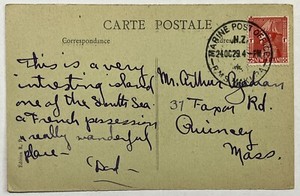 CARTE POSTALE
Correspondance
MARINE POST OFFICE
N.Z.
24 OC 29 4 - PM
R.M.S.
This is a very
interesting island
one of the South Sea
a French possession
a really wonderful
place -
"Dad -
Mr. Arthur
31 Faxon Rd.
Quincy
Mass.